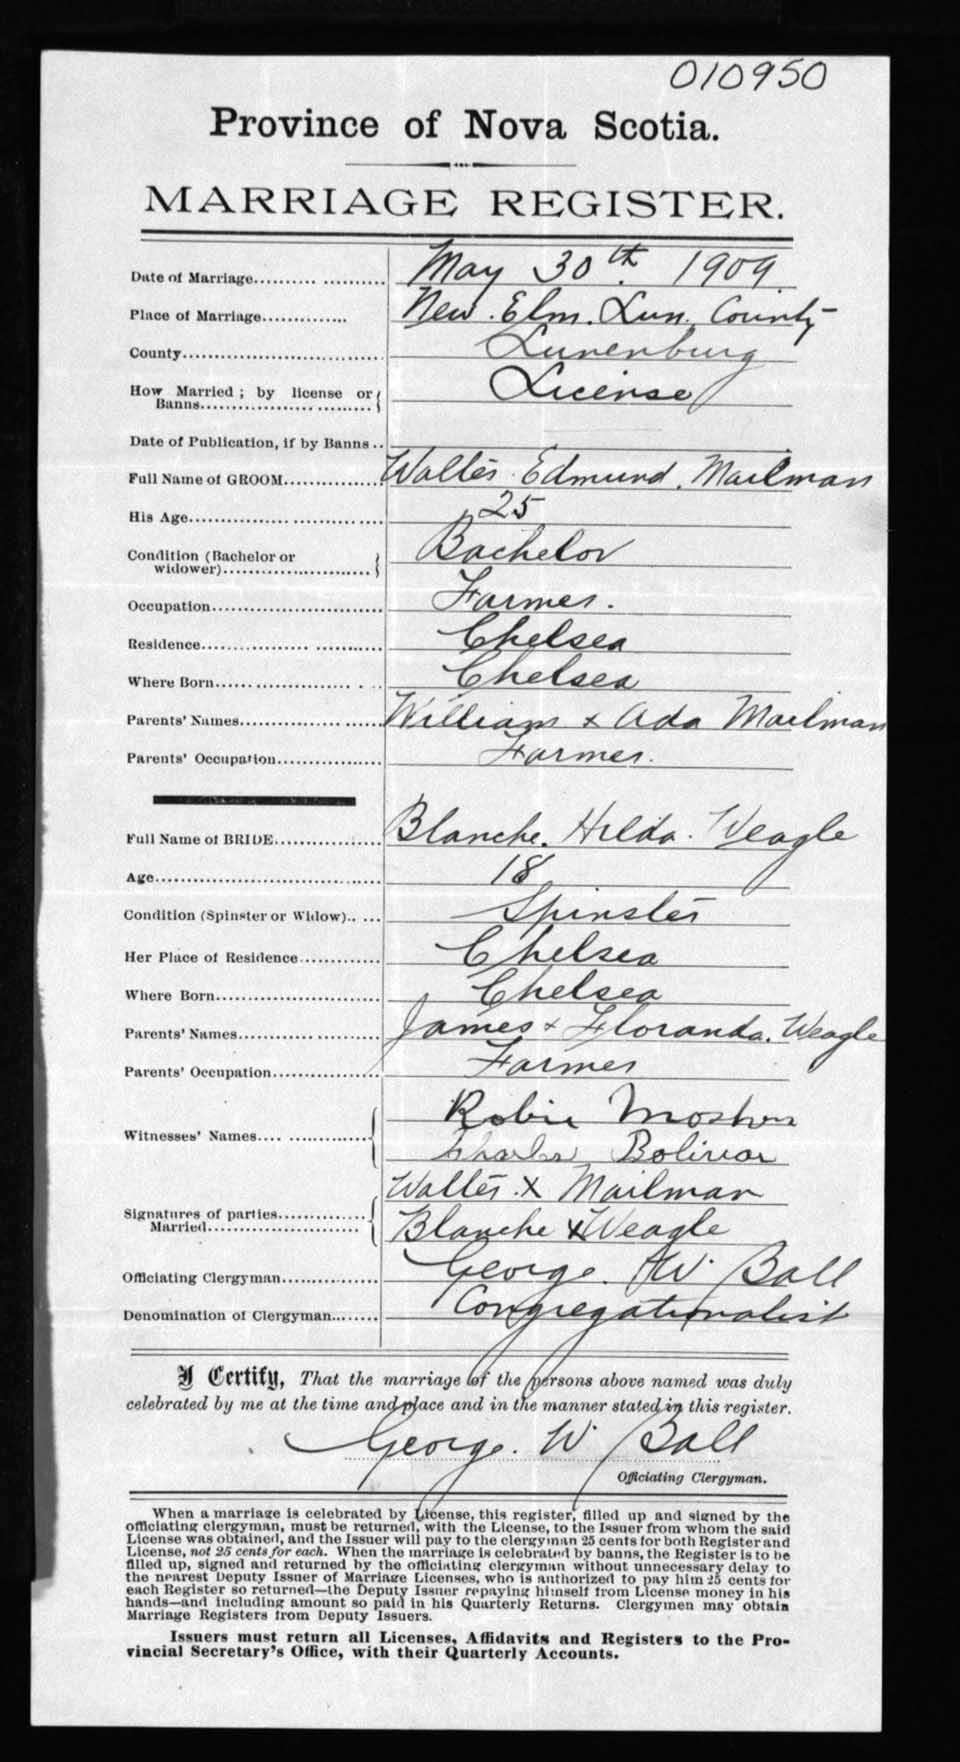 010950
Province of Nova Scotia.
MARRIAGE REGISTER.
Date of Marriage May 30th. 1909.
Place of Marriage New. Elm. Lun. County
County Lunenburg
How Married; by license or Banns License
Date of Publication, if by Banns
Full Name of GROOM Walter Edmund. Mailman
His Age 25
Condition (Bachelor or widower) Bachelor
Occupation Farmer.
Residence Chelsea
Where Born Chelsea
Parents' Names William & Ada Mailman
Parents' Occupation Farmer.
Full Name of BRIDE Blanche. Hilda. Weagle
Age 18
Condition (Spinster or Widow) Spinster
Her Place of Residence Chelsea
Where Born Chelsea
Parents' Names James & Floranda. Weagle
Parents' Occupation Farmer
Witnesses' Names Robie Mosher
Charles Bolivar
Signatures of parties Married Walter X Mailman
Blanche X Weagle
Officiating Clergyman George. W. Ball
Denomination of Clergyman Congregationalist
I Certify, That the marriage of the persons above named was duly
celebrated by me at the time and place and in the manner stated in this register.
George. W. Ball
Officiating Clergyman.
When a marriage is celebrated by License, this register, filled up and signed by the
officiating clergyman, must be returned, with the License, to the Issuer from whom the said
License was obtained, and the Issuer will pay to the clergyman 25 cents for both Register and
License, not 25 cents for each. When the marriage is celebrated by banns, the Register is to be
filled up, signed and returned by the officiating clergyman without unnecessary delay to
the nearest Deputy Issuer of Marriage Licenses, who is authorized to pay him 25 cents for
each Register so returned—the Deputy Issuer repaying himself from License money in his
hands—and including amount so paid in his Quarterly Returns. Clergymen may obtain
Marriage Registers from Deputy Issuers.
Issuers must return all Licenses, Affidavits and Registers to the Pro-
vincial Secretary's Office, with their Quarterly Accounts.